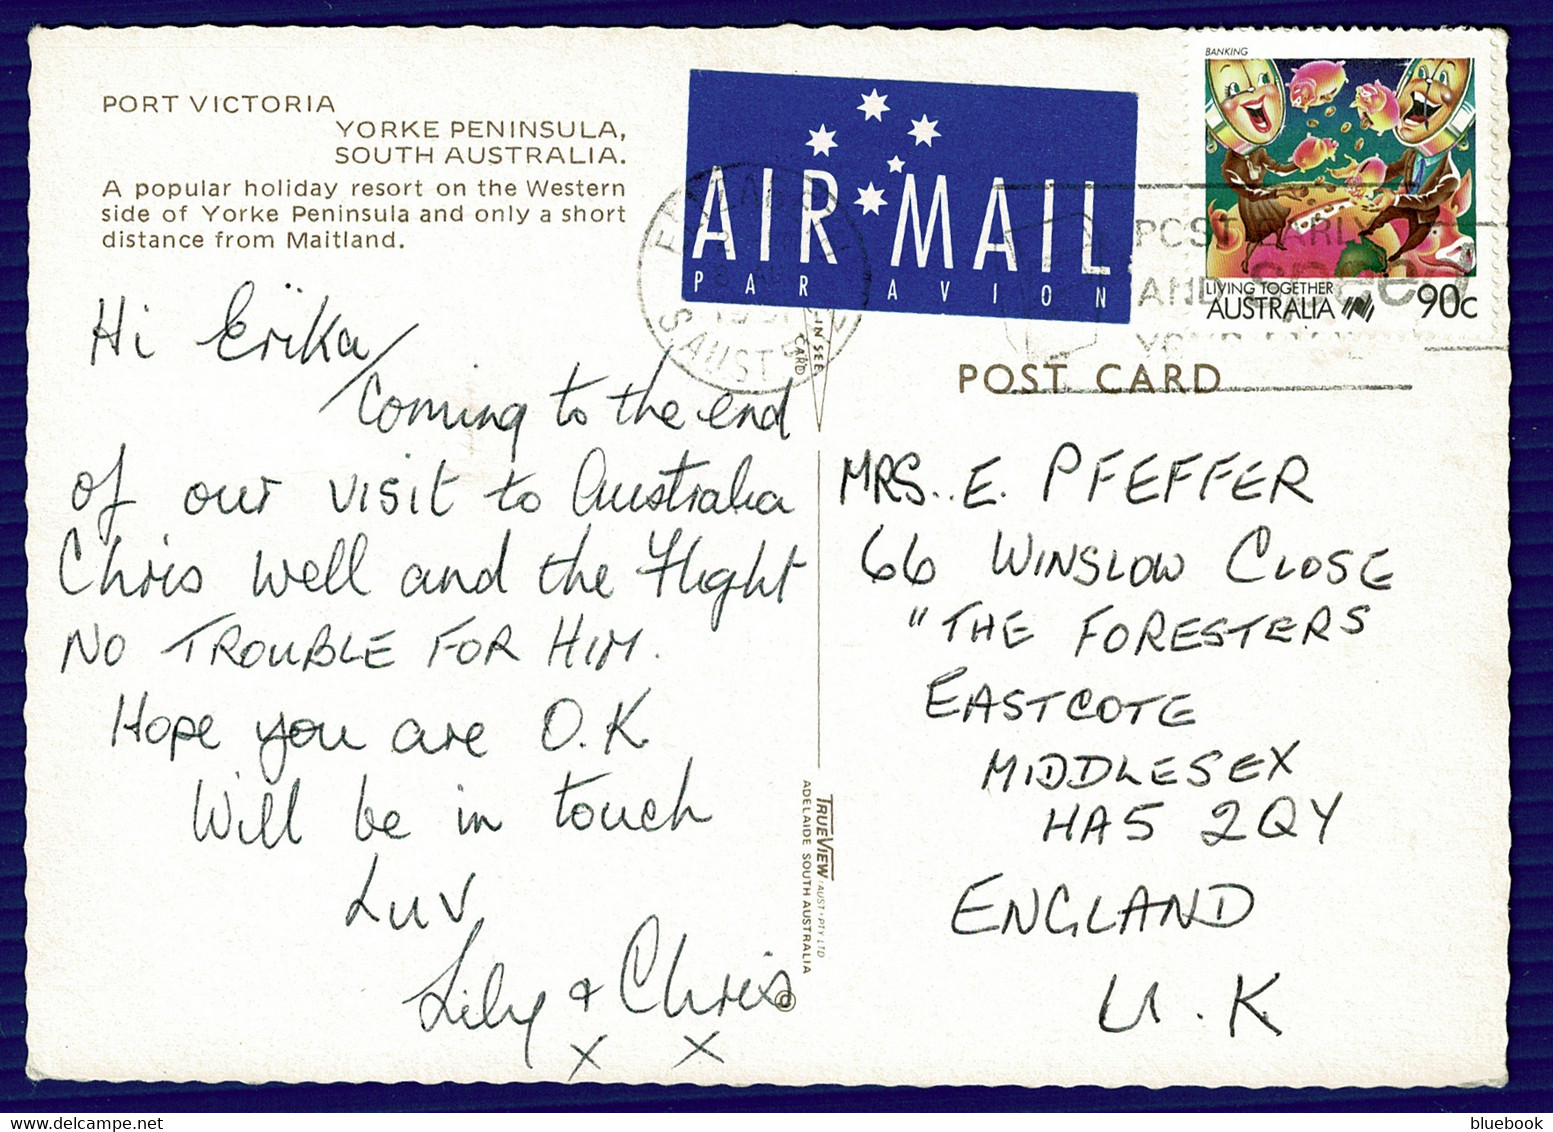 PORT VICTORIA
YORKE PENINSULA,
SOUTH AUSTRALIA.
A popular holiday resort on the Western
side of Yorke Peninsula and only a short
distance from Maitland.
Hi Erika/
Coming to the end
of our visit to Australia
Chris well and the flight
NO TROUBLE FOR HIM.
Hope you are O.K.
Will be in touch
Luv
Lily & Chris
x x
AIR MAIL
PAR AVION
BANKING
LIVING TOGETHER
AUSTRALIA 90c
S. AUST
POSTCARD
AND speed
POST CARD
MRS. E. PFEFFER
66 WINSLOW CLOSE
"THE FORESTERS
EASTCOTE
MIDDLESEX
HA5 2QY
ENGLAND
U.K
TRUEVIEW (AUST) PTY LTD
ADELAIDE SOUTH AUSTRALIA
©
bluebook